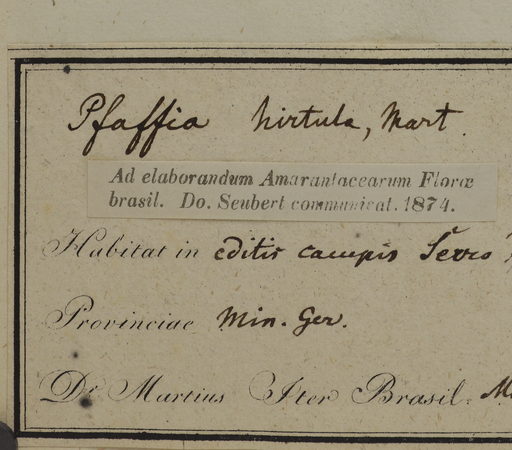 Pfaffia hirtula, Mart.
Ad elaborandum Amarantacearum Floræ
brasil. Do. Seubert communicat. 1874.
Habitat in editis campis Serro
Provinciae Min. Ger.
Dr Martius Iter Brasil.